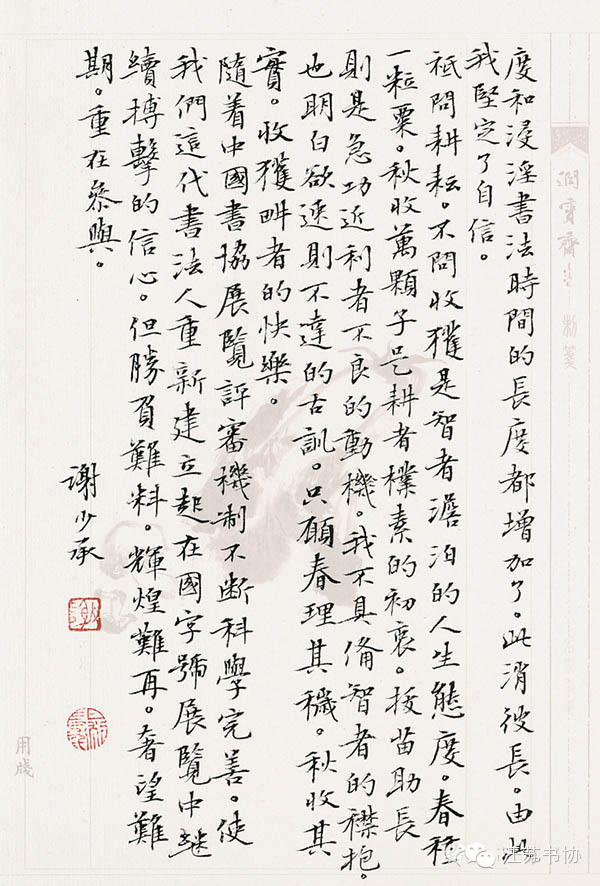 度和浸淫書法時間的長度都增加了。此消彼長。由此
我堅定了自信。
祇問耕耘。不問收獲是智者澹泊的人生態度。春種
一粒粟。秋收萬顆子是耕者樸素的初衷。拔苗助長
則是急功近利者不良的動機。我不具備智者的襟抱。
也明白欲速則不達的古訓。只願春理其穢。秋收其
實。收獲畊者的快樂。
隨着中國書協展覽評審機制不斷科學完善。使
我們這代書法人重新建立起在國字號展覽中继
續搏擊的信心。但勝負難料。輝煌難再。奢望難
期。重在參與。
謝少承
用牋
江苏书协